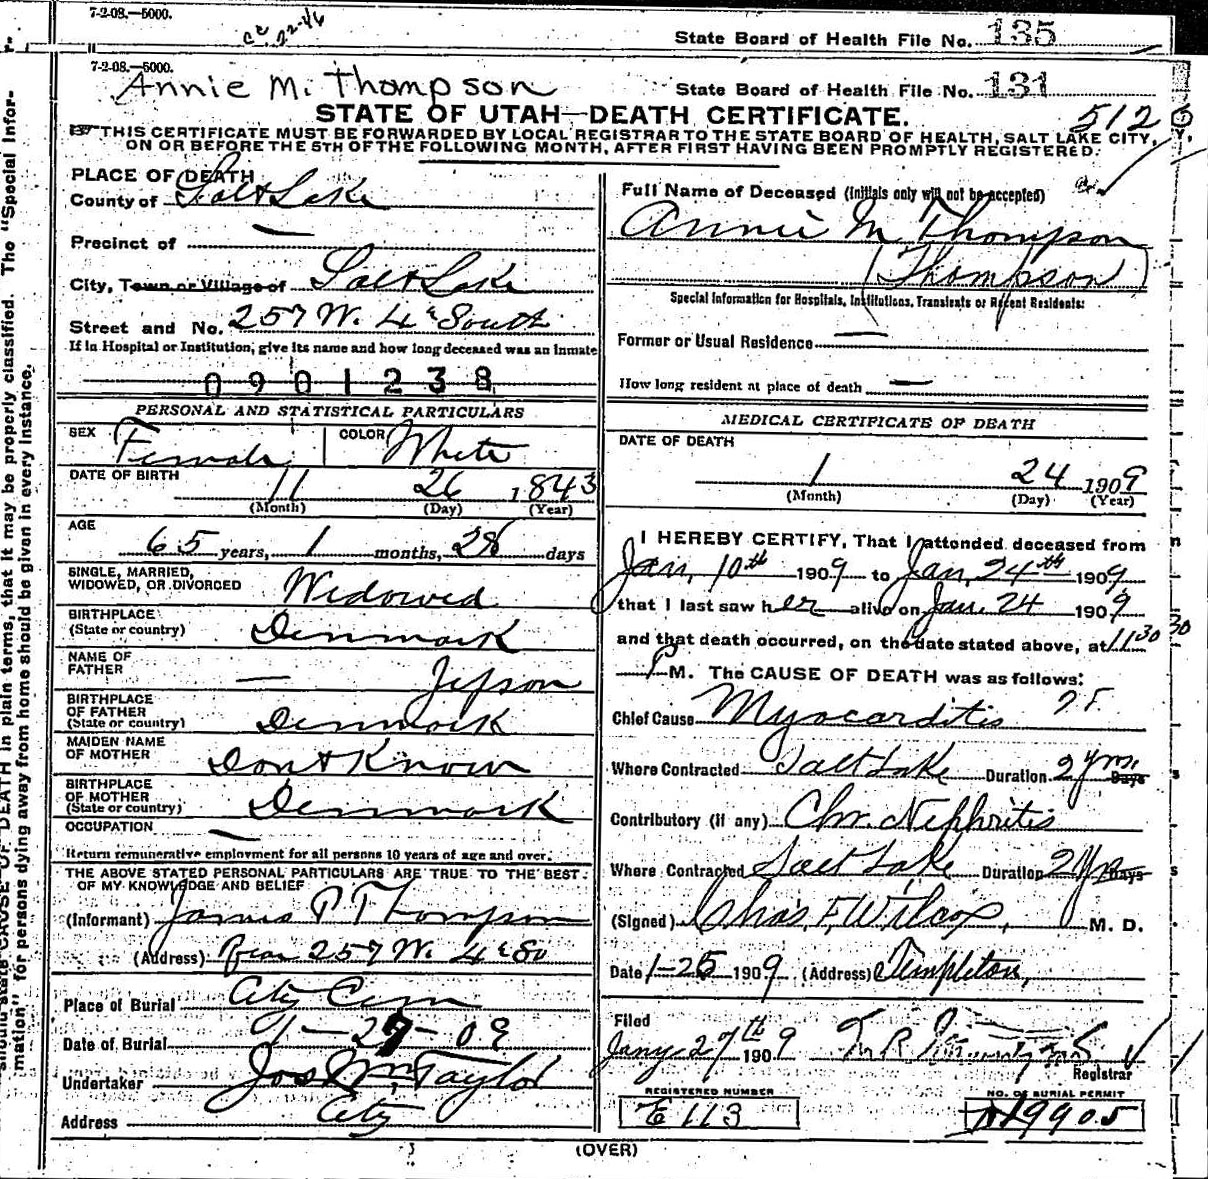 7-2-08.—5000.
State Board of Health File No. 135
7-2-08.—5000.
Annie M. Thompson
State Board of Health File No. 131
STATE OF UTAH—DEATH CERTIFICATE.
512
THIS CERTIFICATE MUST BE FORWARDED BY LOCAL REGISTRAR TO THE STATE BOARD OF HEALTH, SALT LAKE CITY,
ON OR BEFORE THE 5TH OF THE FOLLOWING MONTH, AFTER FIRST HAVING BEEN PROMPTLY REGISTERED.
PLACE OF DEATH
County of Salt Lake
Precinct of —
City, Town or Village of Salt Lake
Street and No. 257 W. 4th South
If in Hospital or Institution, give its name and how long deceased was an inmate
0901238
PERSONAL AND STATISTICAL PARTICULARS
SEX Female COLOR White
DATE OF BIRTH 11 26 1843
(Month) (Day) (Year)
AGE
65 years, 1 months, 28 days
SINGLE, MARRIED,
WIDOWED, OR DIVORCED Widowed
BIRTHPLACE
(State or country) Denmark
NAME OF
FATHER — Jepson
BIRTHPLACE
OF FATHER
(State or country) Denmark
MAIDEN NAME
OF MOTHER Dont Know
BIRTHPLACE
OF MOTHER
(State or country) Denmark
OCCUPATION —
Return remunerative employment for all persons 10 years of age and over.
THE ABOVE STATED PERSONAL PARTICULARS ARE TRUE TO THE BEST
OF MY KNOWLEDGE AND BELIEF
(Informant) James P Thompson
(Address) Rear 257 W. 4th So
Place of Burial City Cem
Date of Burial 1-27-09
Undertaker Jos Wm Taylor
Address City
Full Name of Deceased (Initials only will not be accepted)
Annie M Thompson
(Thompson)
Special Information for Hospitals, Institutions, Transients or Recent Residents:
Former or Usual Residence —
How long resident at place of death —
MEDICAL CERTIFICATE OF DEATH
DATE OF DEATH
1 24 1909
(Month) (Day) (Year)
I HEREBY CERTIFY, That I attended deceased from
Jan, 10th 1909 to Jan, 24th 1909
that I last saw her alive on Jan. 24 1909
and that death occurred, on the date stated above, at 11 30
P M. The CAUSE OF DEATH was as follows:
Chief Cause Myocarditis
Where Contracted Salt Lake Duration 2 yrs. Days
Contributory (if any) Chr. Nephritis
Where Contracted Salt Lake Duration 2 yrs Days
(Signed) Chas. F. Wilcox, M. D.
Date 1-25 1909 (Address) Templeton,
Filed
Jany 27th 1909
Registrar
REGISTERED NUMBER
E 113
NO. OF BURIAL PERMIT
19905
(OVER)
should state CAUSE OF DEATH in plain terms, that it may be properly classified. The "Special Infor-
mation" for persons dying away from home should be given in every instance.